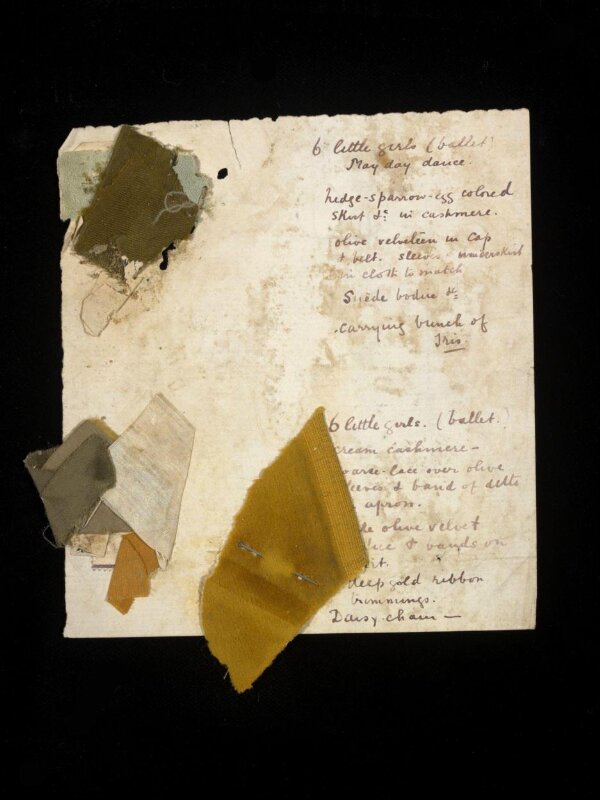 6 little girls (ballet)
May day dance.
hedge-sparrow-egg colored
skirt &c in cashmere.
olive velveteen in cap
+ belt. sleeves underskirt
in cloth to match
Suède bodice &c
carrying bunch of
Iris.
6 little girls. (ballet.)
cream cashmere -
coarse-lace over olive
sleeves & band of ditto
apron.
olive velvet
& bands on
deep gold ribbon
trimmings.
Daisy-chain -